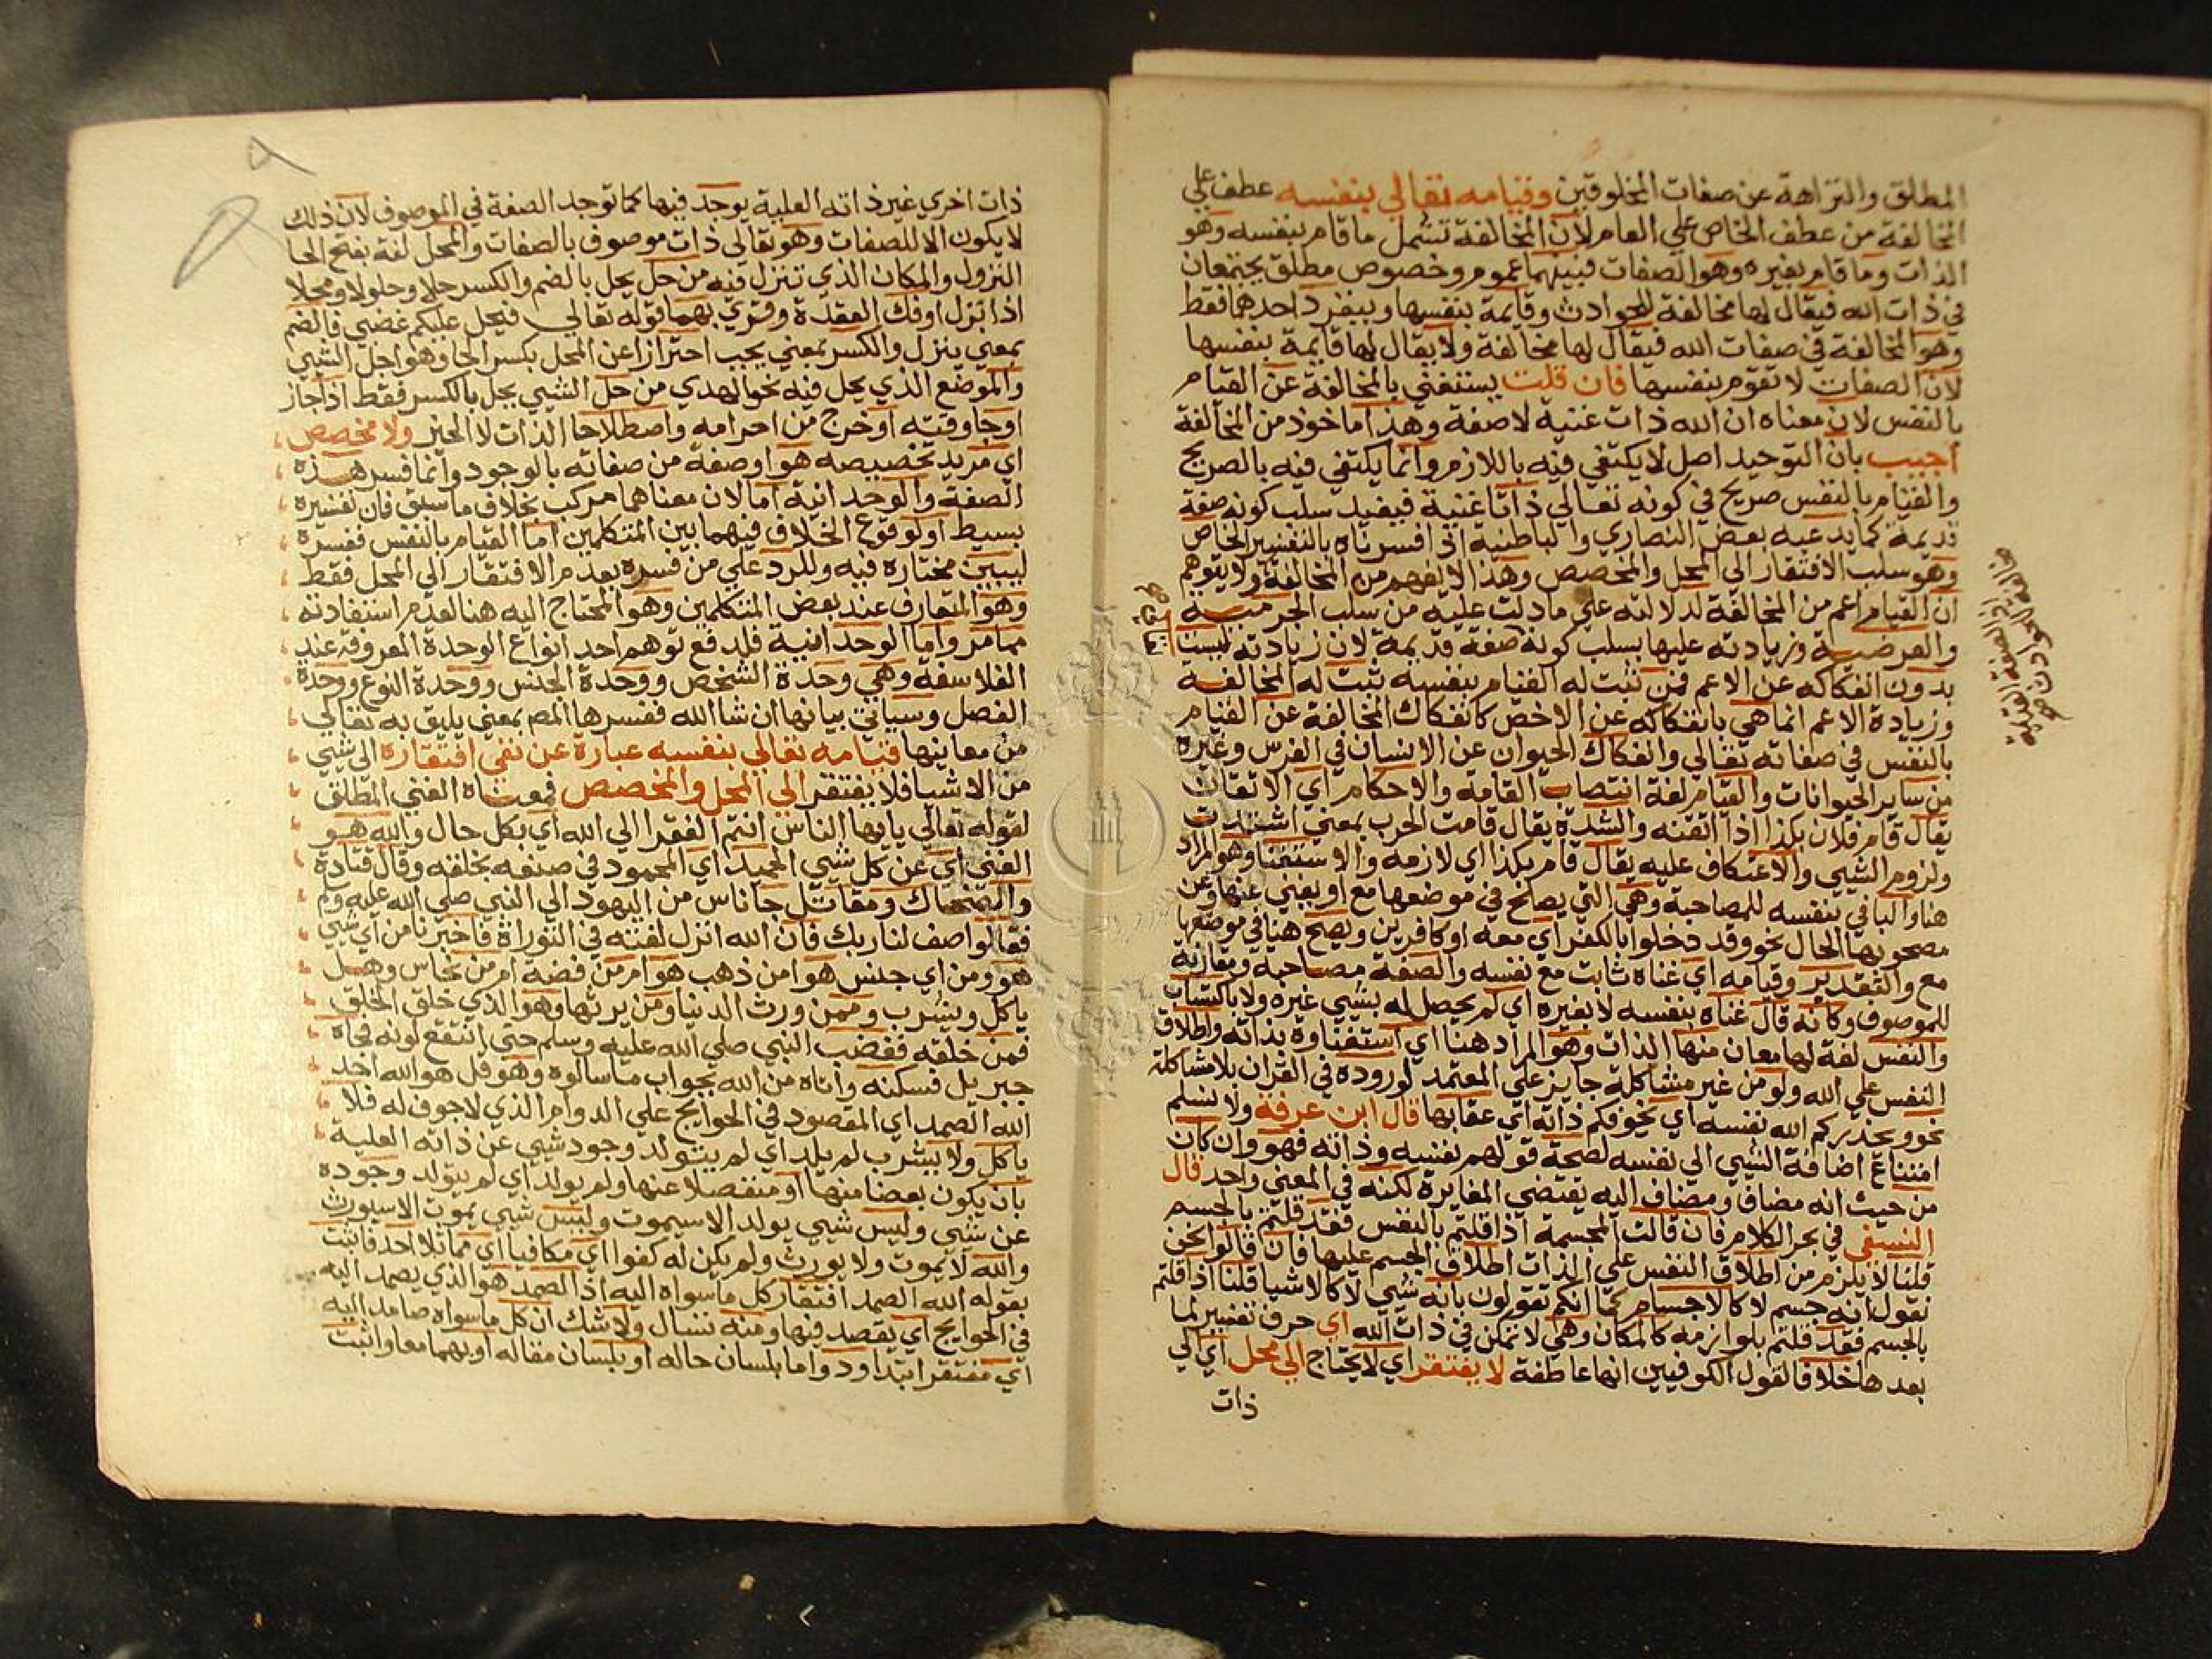 المطلق والنزاهة عن صفات المخلوقين وقيامه تعالي بنفسه عطف علي
المخالفة من عطف الخاص علي العام لان المخالفة تشمل ما قام بنفسه وهو
الذات وما قام بغيره وهو الصفات فبينهما عموم وخصوص مطلق يجتمعان
في ذات الله فيقال لها مخالفة للحوادث وقايمة بنفسها وينفرد احدهما فقط
وهو المخالفة في صفات الله فيقال لها مخالفة ولا يقال لها قايمة بنفسها
لان الصفات لا تقوم بنفسها فان قلت يستغني بالمخالفة عن القيام
بالنفس لان معناه ان الله ذات غنية لا صفة وهذا ماخوذ من المخالفة
اجيب بان التوحيد اصل لا يكتفي فيه باللازم وانما يكتفي فيه بالصريح
والقيام بالنفس صريح في كونه تعالي ذاتا غنية فيفيد سلب كونه صفة
قديمة كما يدعيه بعض النصاري والباطنية اذا فسرناه بالتفسير الخاص
وهو سلب الافتقار الي المحل والمخصص وهذا لا يفهم من المخالفة ولا يتوهم
ان القيام اعم من المخالفة لدلالته علي ما دلت عليه من سلب الجرمية
والعرضية وزيادته عليها بسلب كونه صفة قديمة لان زيادته ليست
بدون انفكاكه عن الاعم فمن ثبت له القيام بنفسه ثبت له المخالفة
وزيادة الاعم انما هي بانفكاكه عن الاخص كانفكاك المخالفة عن القيام
بالنفس في صفاته تعالي وانفكاك الحيوان عن الانسان في الفرس وغيره
من ساير الحيوانات والقيام لغة انتصاب القامة والاحكام اي الاتقان
يقال قام فلان بكذا اذا اتقنه والشدة يقال قامت الحرب بمعني اشتدت
ولزوم الشيي والاعتكاف عليه يقال قام بكذا اي لازمه والاستغنا وهو المراد
هنا والبا في بنفسه للمصاحبة وهي التي يصلح في موضعها مع او يغني عنها وعن
مصحوبها الحال نحو وقد دخلوا بالكفر اي معه او كافرين ويصح هنا في موضعها
مع والتقدير وقيامه اي غناه ثابت مع نفسه والصفة مصاحبة ومقارنة
للموصوف وكانه قال غناه بنفسه لا بغيره اي لم يحصل له بشيي غيره ولا باكتساب
والنفس لغة لها معان منها الذات وهو المراد هنا اي استغناوه بذاته واطلاق
النفس علي الله ولو من غير مشاكلة جايز علي المعتمد لوروده في القران بلا مشاكلة
نحو ويحذركم الله نفسه اي يخوفكم ذاته اي عقابها قال ابن عرفة ولا نسلم
امتناع اضافة الشيي الي نفسه لصحة قولهم نفسه وذاته فهو وان كان
من حيث انه مضاف ومضاف اليه يقتضي المغايرة لكنه في المعني واحد قال
النسفي في بحر الكلام فان قالت المجسمة اذا قلتم بالنفس فقد قلتم بالجسم
قلنا لا يلزم من اطلاق النفس علي الذات اطلاق الجسم عليها فان قالوا نحن
نقول انه جسم لا كالاجسام كما انكم تقولون بانه شيي لا كالاشيا قلنا اذا قلتم
بالجسم فقد قلتم بلوازمه كالمكان وهي لا تمكن في ذات الله اي حرف تفسير لما
بعدها خلافا لقول الكوفيين انها عاطفة لا يفتقر اي لا يحتاج الي محل اي الي
ذات
ذات اخري غير ذاته العلية يوجد فيها كما توجد الصفة في الموصوف لان ذلك
لا يكون الا للصفات وهو تعالي ذات موصوف بالصفات والمحل لغة بفتح الحا
النزول والمكان الذي تنزل فيه من حل يحل بالضم والكسر حلا وحلولا ومحلا
اذا نزل او فك العقدة وقري بهما قوله تعالي فيحل عليكم غضبي فالضم
بمعني ينزل والكسر بمعني يجب احترازا عن المحل بكسر الحا وهو اجل الشيي
والموضع الذي يحل فيه نحو الهدي من حل الشيي يحل بالكسر فقط اذا جاز
او جا وقته او خرج من احرامه واصطلاحا الذات لا الحيز ولا مخصص
اي مريد تخصيصه هو او صفة من صفاته بالوجود وانما فسر هذه
الصفة والوحدانية اما لان معناهما مركب بخلاف ما سبق فان تفسيره
بسيط او لوقوع الخلاف فيهما بين المتكلمين اما القيام بالنفس ففسره
ليبين مختاره فيه وللرد علي من فسره بعدم الافتقار الي المحل فقط
وهو المتعارف عند بعض المتكلمين وهو المحتاج اليه هنا لعدم استفادته
مما مر واما الوحدانية فلدفع توهم احد انواع الوحدة المعروفة عند
الفلاسفة وهي وحدة الشخص ووحدة الجنس ووحدة النوع ووحدة
الفصل وسياتي بيانها ان شا الله ففسرها المص بمعني يليق به تعالي
من معاينها قيامه تعالي بنفسه عبارة عن نفي افتقاره الي شيي
من الاشيا فلا يفتقر الي المحل والمخصص فمعناه الغني المطلق
لقوله تعالي يايها الناس انتم الفقرا الي الله اي بكل حال والله هو
الغني اي عن كل شيي الحميد اي المحمود في صنعه بخلقه وقال قتادة
والضحاك ومقاتل جا ناس من اليهود الي النبي صلي الله عليه وسلم
فقالوا صف لنا ربك فان الله انزل نعته في التوراة فاخبرنا من اي شيي
هو ومن اي جنس هو امن ذهب هو ام من فضه ام من نحاس وهل
ياكل ويشرب وممن ورث الدنيا ومن يرثها وهو الذي خلق الخلق
فمن خلقه فغضب النبي صلي الله عليه وسلم حتي انتقع لونه فجاه
جبريل فسكنه واتاه من الله بجواب ما سالوه وهو قل هو الله احد
الله الصمد اي المقصود في الحوايج علي الدوام الذي لا جوف له فلا
ياكل ولا يشرب لم يلد اي لم يتولد وجود شيي عن ذاته العلية
بان يكون بعضا منها او منفصلا عنها ولم يولد اي لم يتولد وجوده
عن شيي وليس شيي يولد الا سيموت وليس شيي يموت الا سيورث
والله لا يموت ولا يورث ولم يكن له كفوا اي مكافيا اي مماثلا احد فاثبت
بقوله الله الصمد افتقار كل ما سواه اليه اذ الصمد هو الذي يصمد اليه
في الحوايج اي يقصد فيها ومنه تسال ولا شك ان كل ما سواه صامد اليه
اي مفتقر ابتدا ودواما بلسان حاله او بلسان مقاله او بهما معا واثبت